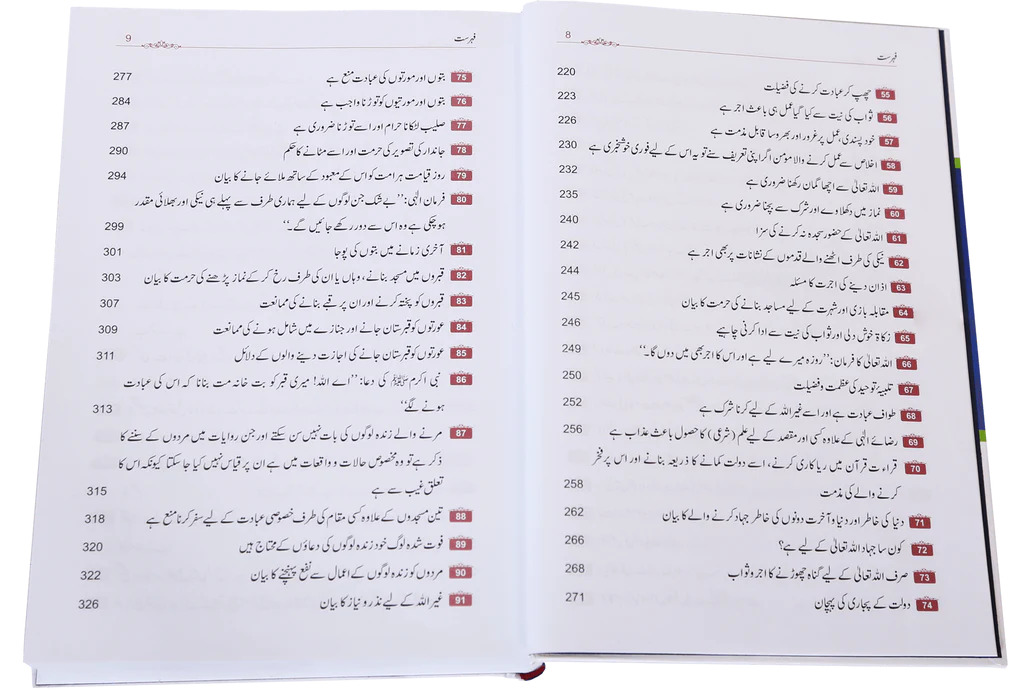 فہرست 8
55 چھپ کر عبادت کرنے کی فضیلت 220
56 ثواب کی نیت سے کیا گیا عمل ہی باعث اجر ہے 223
57 خود پسندی، عمل پر غرور اور بھروسا قابل مذمت ہے 226
58 اخلاص سے عمل کرنے والا مومن اگر اپنی تعریف سنے تو یہ اس کے لیے فوری خوشخبری ہے 230
59 اللہ تعالیٰ سے اچھا گمان رکھنا ضروری ہے 232
60 نماز میں دکھلاوے اور شرک سے بچنا ضروری ہے 235
61 اللہ تعالیٰ کے حضور سجدہ نہ کرنے کی سزا 240
62 نیکی کی طرف اٹھنے والے قدموں کے نشانات پر بھی اجر ہے 242
63 اذان دینے کی اجرت کا مسئلہ 244
64 مقابلہ بازی اور شہرت کے لیے مساجد بنانے کی حرمت کا بیان 245
65 زکاۃ خوش دلی اور ثواب کی نیت سے ادا کرنی چاہیے 246
66 اللہ تعالیٰ کا فرمان: ’’روزہ میرے لیے ہے اور اس کا اجر بھی میں دوں گا۔‘‘ 249
67 تلبیۂ توحید کی عظمت و فضیلت 250
68 طواف عبادت ہے اور اسے غیراللہ کے لیے کرنا شرک ہے 252
69 رضائے الٰہی کے علاوہ کسی اور مقصد کے لیے علم (شرعی) کا حصول باعث عذاب ہے 256
70 قراءت قرآن میں ریاکاری کرنے، اسے دولت کمانے کا ذریعہ بنانے اور اس پر فخر
کرنے والے کی مذمت 258
71 دنیا کی خاطر اور دنیا و آخرت دونوں کی خاطر جہاد کرنے والے کا بیان 262
72 کون سا جہاد اللہ تعالیٰ کے لیے ہے؟ 266
73 صرف اللہ تعالیٰ کے لیے گناہ چھوڑنے کا اجر و ثواب 268
74 دولت کے پجاری کی پہچان 271
فہرست 9
75 بتوں اور مورتوں کی عبادت منع ہے 277
76 بتوں اور مورتیوں کو توڑنا واجب ہے 284
77 صلیب لٹکانا حرام اور اسے توڑنا ضروری ہے 287
78 جاندار کی تصویر کی حرمت اور اسے مٹانے کا حکم 290
79 روز قیامت ہر امت کو اس کے معبود کے ساتھ ملائے جانے کا بیان 294
80 فرمان الٰہی: ’’بے شک جن لوگوں کے لیے ہماری طرف سے پہلے ہی نیکی اور بھلائی مقدر
ہوچکی ہے وہ اس سے دور رکھے جائیں گے۔‘‘ 299
81 آخری زمانے میں بتوں کی پوجا 301
82 قبروں میں مسجد بنانے، وہاں یا ان کی طرف رخ کر کے نماز پڑھنے کی حرمت کا بیان 303
83 قبروں کو پختہ کرنے اور ان پر قبے بنانے کی ممانعت 307
84 عورتوں کو قبرستان جانے اور جنازے میں شامل ہونے کی ممانعت 309
85 عورتوں کو قبرستان جانے کی اجازت دینے والوں کے دلائل 311
86 نبی اکرم ﷺ کی دعا: ’’اے اللہ! میری قبر کو بت خانہ مت بنانا کہ اس کی عبادت
ہونے لگے‘‘ 313
87 مرنے والے زندہ لوگوں کی بات نہیں سن سکتے اور جن روایات میں مردوں کے سننے کا
ذکر ہے تو وہ مخصوص حالات و واقعات میں ہے ان پر قیاس نہیں کیا جاسکتا کیونکہ اس کا
تعلق غیب سے ہے 315
88 تین مسجدوں کے علاوہ کسی مقام کی طرف خصوصی عبادت کے لیے سفر کرنا منع ہے 318
89 فوت شدہ لوگ خود زندہ لوگوں کی دعاؤں کے محتاج ہیں 320
90 مردوں کو زندہ لوگوں کے اعمال سے نفع پہنچنے کا بیان 322
91 غیراللہ کے لیے نذر و نیاز کا بیان 326